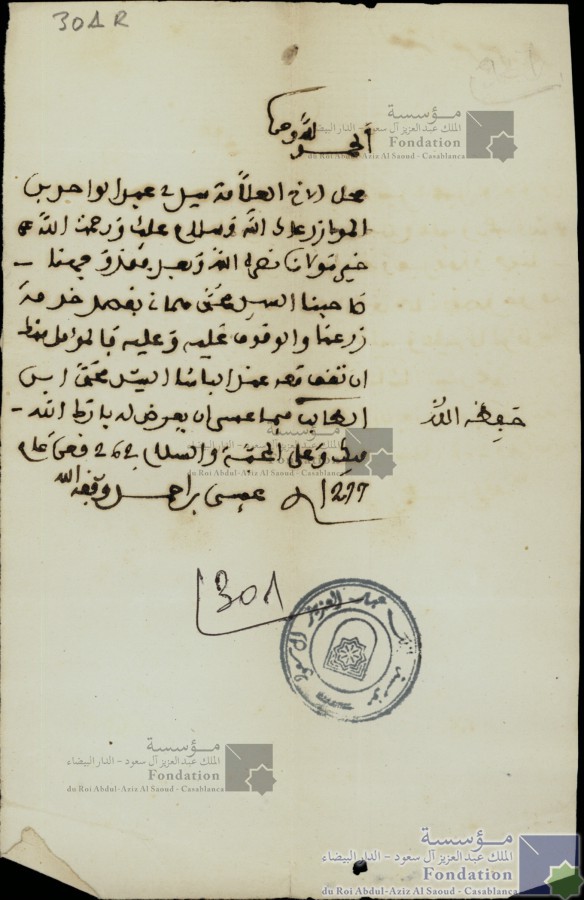 301 R
الحمد لله وحده
محل الاخ العلامة سيدي عبد الواحد بن
المواز رعاك الله وسلام عليك ورحمت الله عن
خير مولانا نصره الله وبعد فقد وجهنا
صاحبنا السيد محمد بقصد خدمة
زرعنا والوقوف عليه وعليه فالمؤمل منك
ان تقف معه عند الباشا السيد محمد
الله
حفظه الله
وعلى المحبة والسلام في 26 قعدة عام
1297 عيسى بن احمد وفقه الله
301
مؤسسة الملك عبد العزيز آل سعود
مؤسسة
الملك عبد العزيز آل سعود - الدار البيضاء
Fondation
du Roi Abdul-Aziz Al Saoud - Casablanca
مؤسسة
الملك عبد العزيز آل سعود - الدار البيضاء
Fondation
du Roi Abdul-Aziz Al Saoud - Casablanca
مؤسسة
الملك عبد العزيز آل سعود - الدار البيضاء
Fondation
du Roi Abdul-Aziz Al Saoud - Casablanca
مؤسسة
الملك عبد العزيز آل سعود - الدار البيضاء
Fondation
du Roi Abdul-Aziz Al Saoud - Casablanca